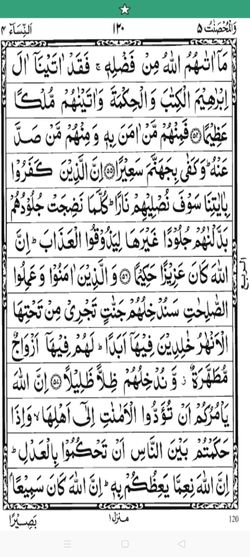 وَالْمُحْصَنٰتُ ۵ ۱۲۰ اَلنِّسَآء ۴
مَاۤ اٰتٰىهُمُ اللّٰهُ مِنْ فَضْلِهٖ ۚ فَقَدْ اٰتَيْنَاۤ اٰلَ
اِبْرٰهِيْمَ الْكِتٰبَ وَالْحِكْمَةَ وَاٰتَيْنٰهُمْ مُّلْكًا
عَظِيْمًا ﴿۵۴﴾ فَمِنْهُمْ مَّنْ اٰمَنَ بِهٖ وَمِنْهُمْ مَّنْ صَدَّ
عَنْهُ ؕ وَكَفٰى بِجَهَنَّمَ سَعِيْرًا ﴿۵۵﴾ اِنَّ الَّذِيْنَ كَفَرُوْا
بِاٰيٰتِنَا سَوْفَ نُصْلِيْهِمْ نَارًا ؕ كُلَّمَا نَضِجَتْ جُلُوْدُهُمْ
بَدَّلْنٰهُمْ جُلُوْدًا غَيْرَهَا لِيَذُوْقُوا الْعَذَابَ ؕ اِنَّ
اللّٰهَ كَانَ عَزِيْزًا حَكِيْمًا ﴿۵۶﴾ وَالَّذِيْنَ اٰمَنُوْا وَعَمِلُوا
الصّٰلِحٰتِ سَنُدْخِلُهُمْ جَنّٰتٍ تَجْرِيْ مِنْ تَحْتِهَا
الْاَنْهٰرُ خٰلِدِيْنَ فِيْهَاۤ اَبَدًا ؕ لَهُمْ فِيْهَاۤ اَزْوَاجٌ
مُّطَهَّرَةٌ ۫ وَّنُدْخِلُهُمْ ظِلًّا ظَلِيْلًا ﴿۵۷﴾ اِنَّ اللّٰهَ
يَاْمُرُكُمْ اَنْ تُؤَدُّوا الْاَمٰنٰتِ اِلٰۤى اَهْلِهَا ۙ وَاِذَا
حَكَمْتُمْ بَيْنَ النَّاسِ اَنْ تَحْكُمُوْا بِالْعَدْلِ ؕ
اِنَّ اللّٰهَ نِعِمَّا يَعِظُكُمْ بِهٖ ؕ اِنَّ اللّٰهَ كَانَ سَمِيْعًۢا
بَصِيْرًا منزل ۱ 120
الربع